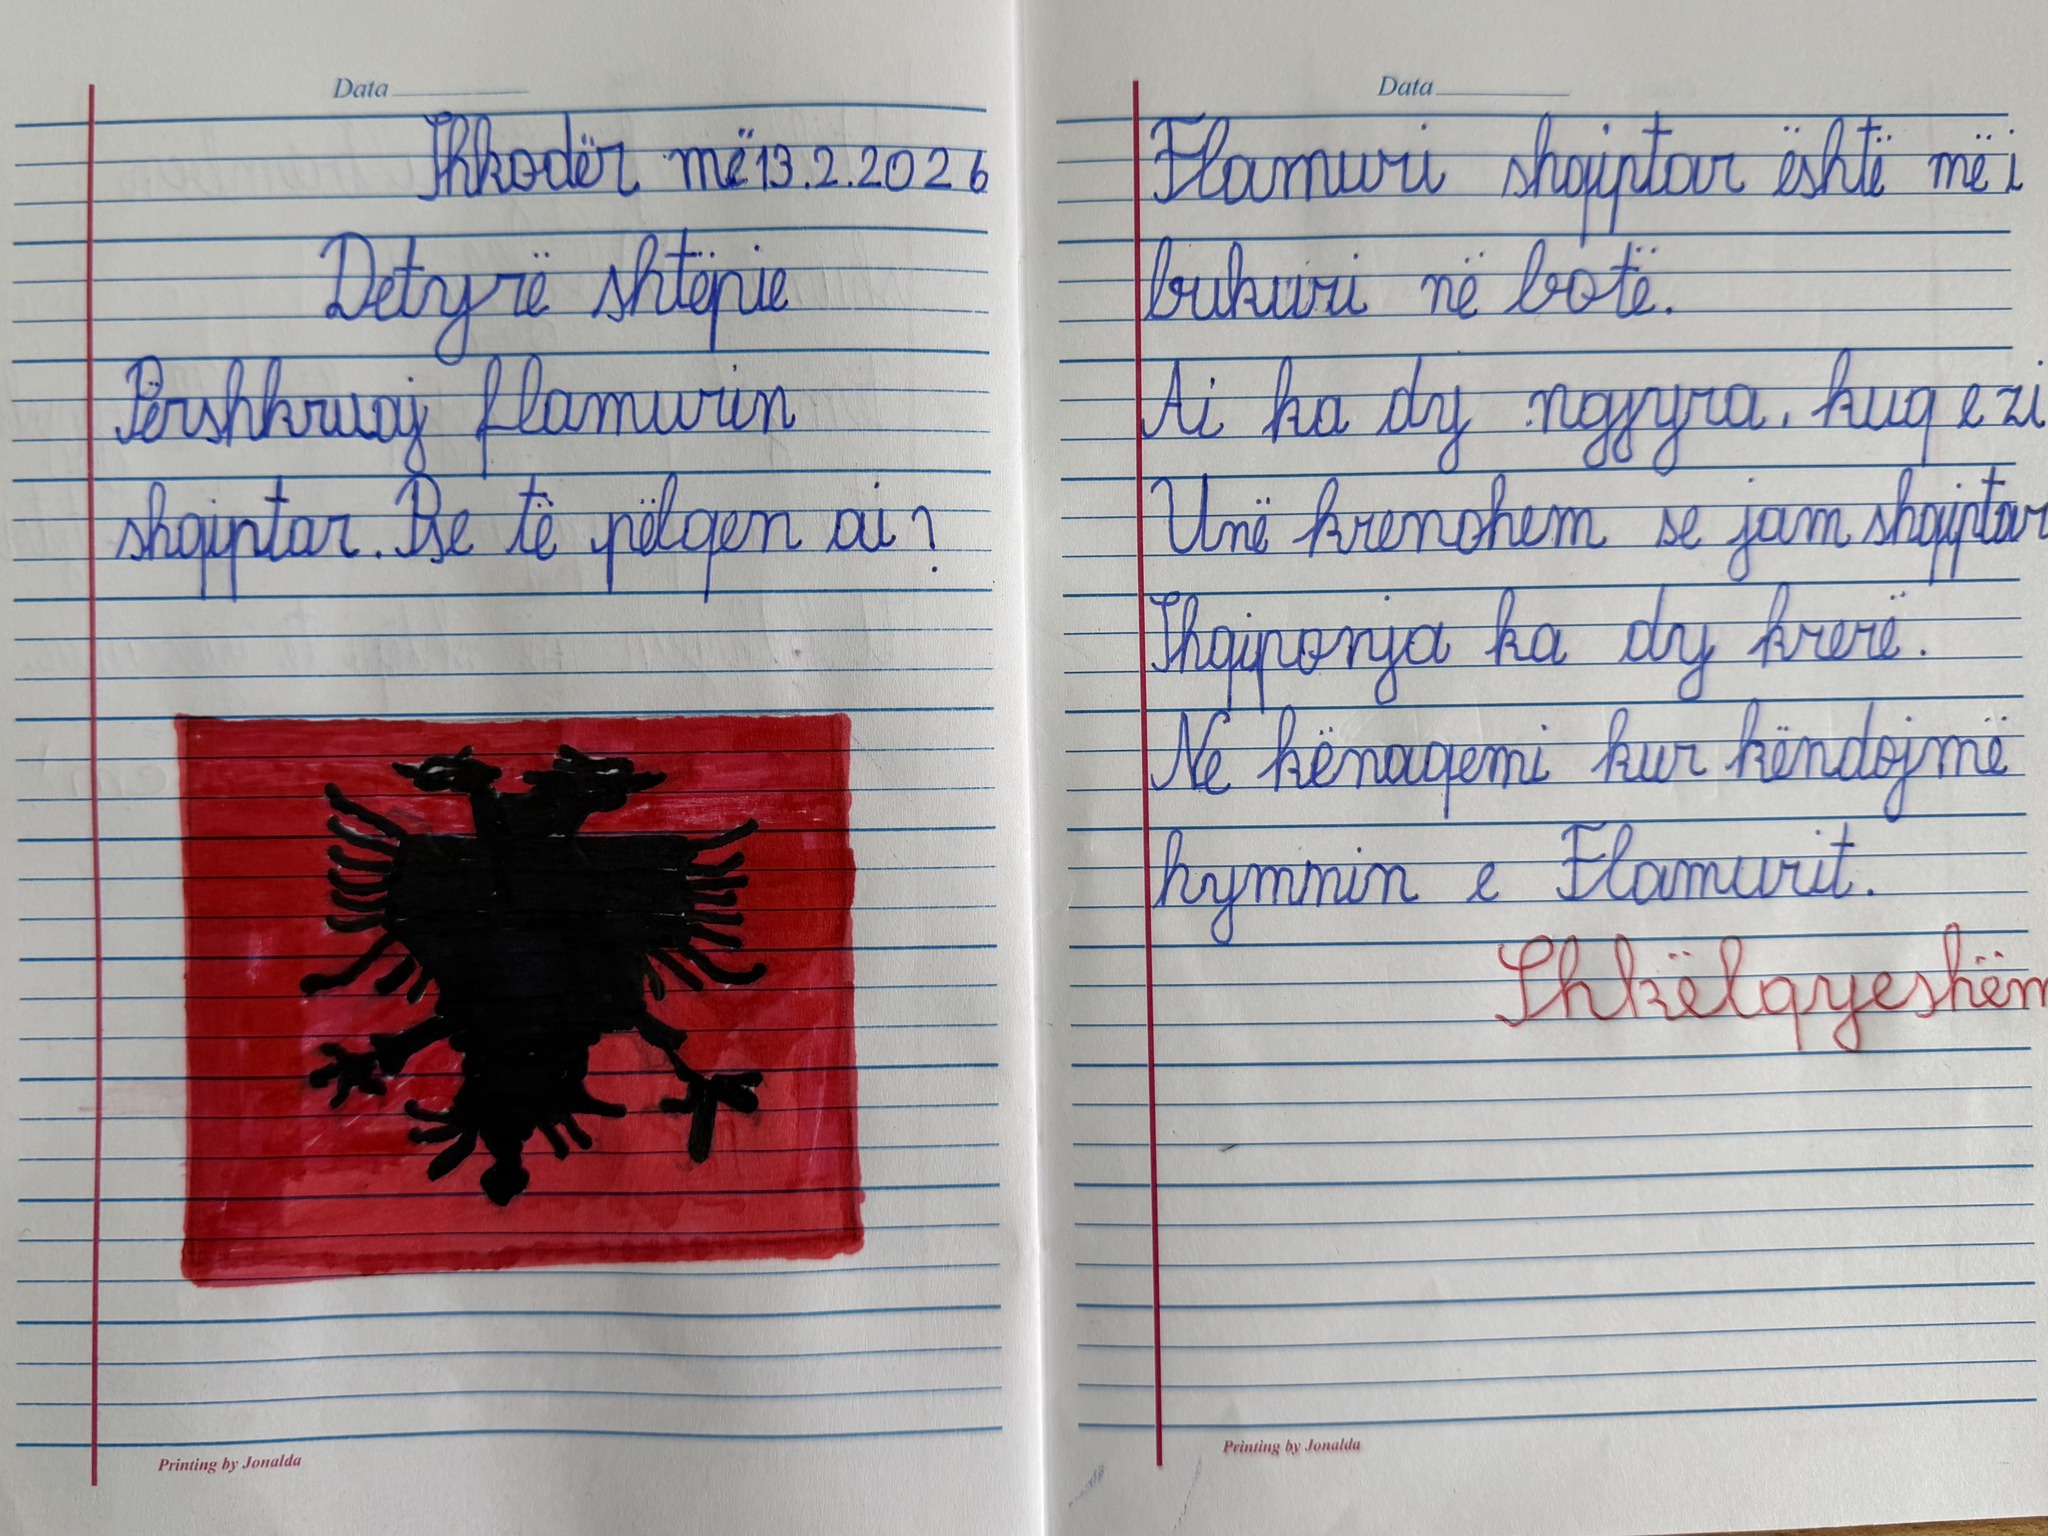 Data
Shkodër më 13.2.2026
Detyrë shtëpie
Përshkruaj flamurin
shqiptar. Pse të pëlqen ai?
Printing by Jonalda
Data
Flamuri shqiptar është më i
bukuri në botë.
Ai ka dy ngjyra, kuq e zi
Unë krenohem se jam shqiptar
Shqiponja ka dy krerë.
Ne kënaqemi kur këndojmë
hymnin e Flamurit.
Shkëlqyeshëm
Printing by Jonalda